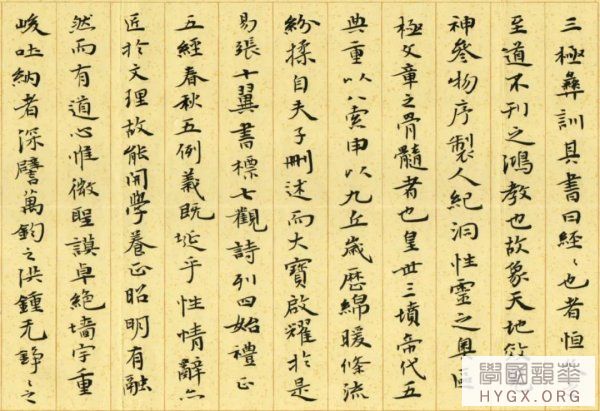 三極彝訓其書曰経〻也者恒
至道不刊之鴻教也故象天地效
神參物序製人紀洞性靈之奥區
極文章之骨髓者也皇世三墳帝代五
典重以八索申以九丘歳歴綿曖條流
紛揉自夫子刪述而大寶啟耀於是
易張十翼書標七觀詩列四始禮正
五經春秋五例義既埏乎性情辭亦
匠於文理故能開學養正昭明有融
然而有道心惟微聖謨卓絶墻宇重
峻吐納者深譬萬鈞之洪鍾无錚〻之
學國韻華
HYGX.ORG